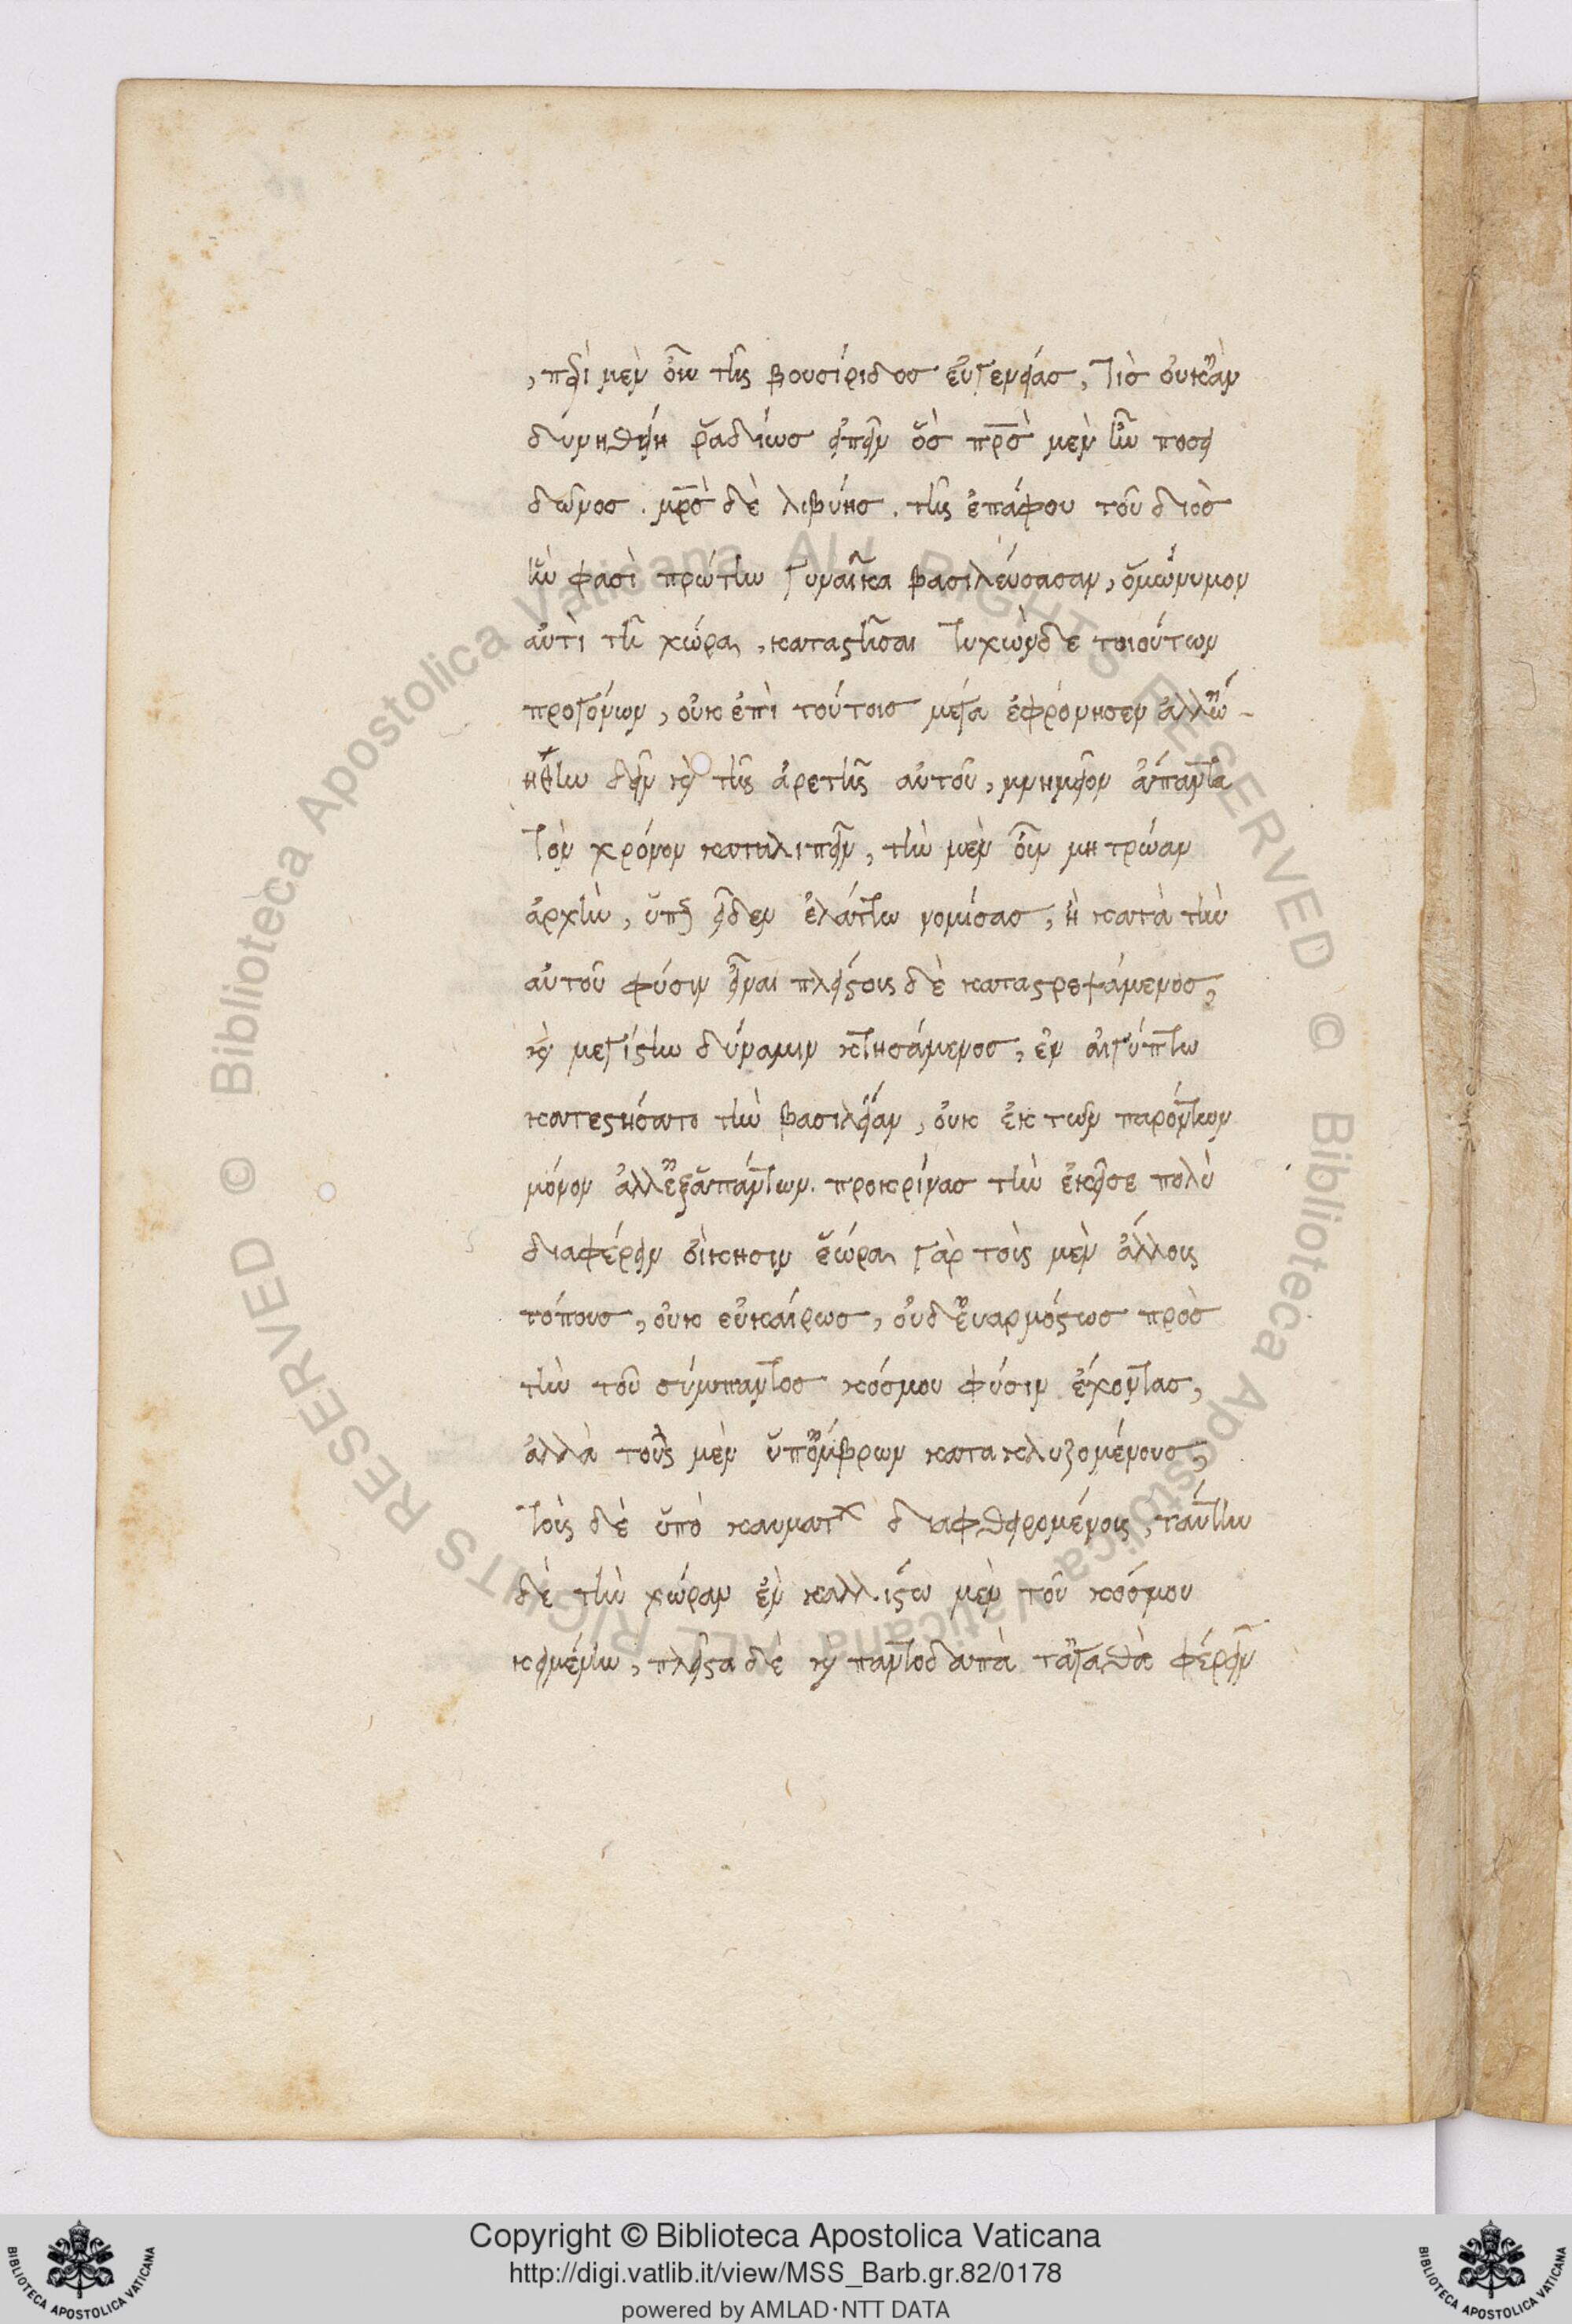 , περὶ μὲν οὖν τῆς βουσίριδος εὐγενείας, τίς οὐκ ἂν
δυνηθείη ῥαδίως εἰπεῖν ὃς πατρὸς μὲν ἦν ποσει
δῶνος . μητρὸς δὲ λιβύης . τῆς ἐπάφου τοῦ διὸς
ἣν φασὶ πρώτην γυναῖκα βασιλεύσασαν, ὁμώνυμον
αὐτὴ τῆ χώρα, καταστῆσαι τυχὼν δε τοιούτων
προγόνων, οὐκ ἐπὶ τούτοις μέγα ἐφρόνησεν ἀλλ' ὠ-
ήθην δεῖν καὶ τῆς ἀρετῆς αὐτοῦ, μνημεῖον ἅπαντα
τὸν χρόνον καταλιπεῖν, τὴν μὲν οὖν μητρώαν
ἀρχὴν, ὑπὲρ εἶδεν ἐλάττω νομίσας, ἢ κατὰ τὴν
αὐτοῦ φύσιν εἶναι πλείστους δὲ καταστρεψάμενος,
καὶ μεγίστην δύναμιν κτησάμενος, ἐν αἰγύπτω
κατεστήσατο τὴν βασιλείαν, οὐκ ἐκ τῶν παρόντων
μόνον ἀλλ' ἐξ ἁπάντων. προκρίνας τὴν ἐκεῖσε πολὺ
διαφέρειν οἴκησιν ἑώρα γὰρ τοὺς μὲν ἄλλους
τόπους, οὐκ εὐκαίρως, οὐδ' εὐαρμόστως πρὸς
τὴν τοῦ σύμπαντος κόσμου φύσιν ἔχοντας,
ἀλλὰ τοὺς μὲν ὑπ' ὄμβρων κατακλυζομένους,
τοὺς δὲ ὑπὸ καυμάτων διαφθειρομένους, ταύτην
δὲ τὴν χώραν ἐν καλλίστω μὲν τοῦ κόσμου
κειμένην, πλεῖστα δὲ καὶ παντοδαπὰ τἀγαθὰ φέρειν
Copyright © Biblioteca Apostolica Vaticana
http://digi.vatlib.it/view/MSS_Barb.gr.82/0178
powered by AMLAD·NTT DATA
BIBLIOTECA APOSTOLICA VATICANA
BIBLIOTECA APOSTOLICA VATICANA
© Biblioteca Apostolica Vaticana ALL RIGHTS RESERVED
© Biblioteca Apostolica Vaticana ALL RIGHTS RESERVED